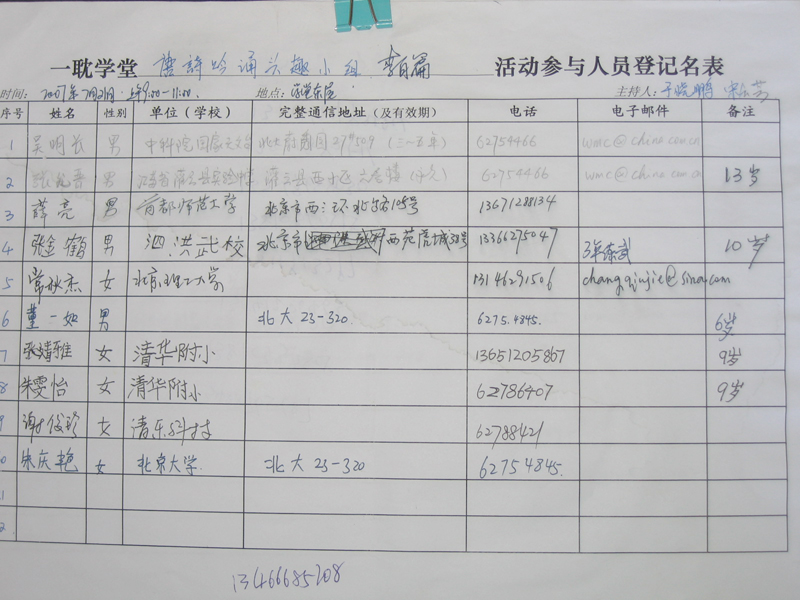 一耽学堂 唐詩吟诵兴趣小组 李白篇 活动参与人员登记名表
时间: 2007年7月21日 上午9:00-11:00. 地点: 主持人: 于晓鹏
序号 姓名 性别 单位(学校) 完整通信地址(及有效期) 电话 电子邮件 备注
1 吴明长 男 中科院国家天文台 北大 (三~五年) 62754466 wmc@china.com.cn
2 男 62754466 wmc@china.com.cn 13岁
3 薛亮 男 首都师范大学 北京市西三环北路105号 13671288134
4 张金鹤 男 泗洪武校 北京市 西苑 13366275047 3年练武 10岁
5 常秋杰 女 北京理工大学 13146291506 changqiujie@sina.com
6 董一如 男 北大23-320. 6275.4845. 6岁
7 张婧雅 女 清华附小 13651205867 9岁
8 朱雯怡 女 清华附小 62786407 9岁
9 谢俊珍 女 清乐科技 62788421
0 朱庆艳 女 北京大学. 北大23-320 62754845.
1
2
13466685708